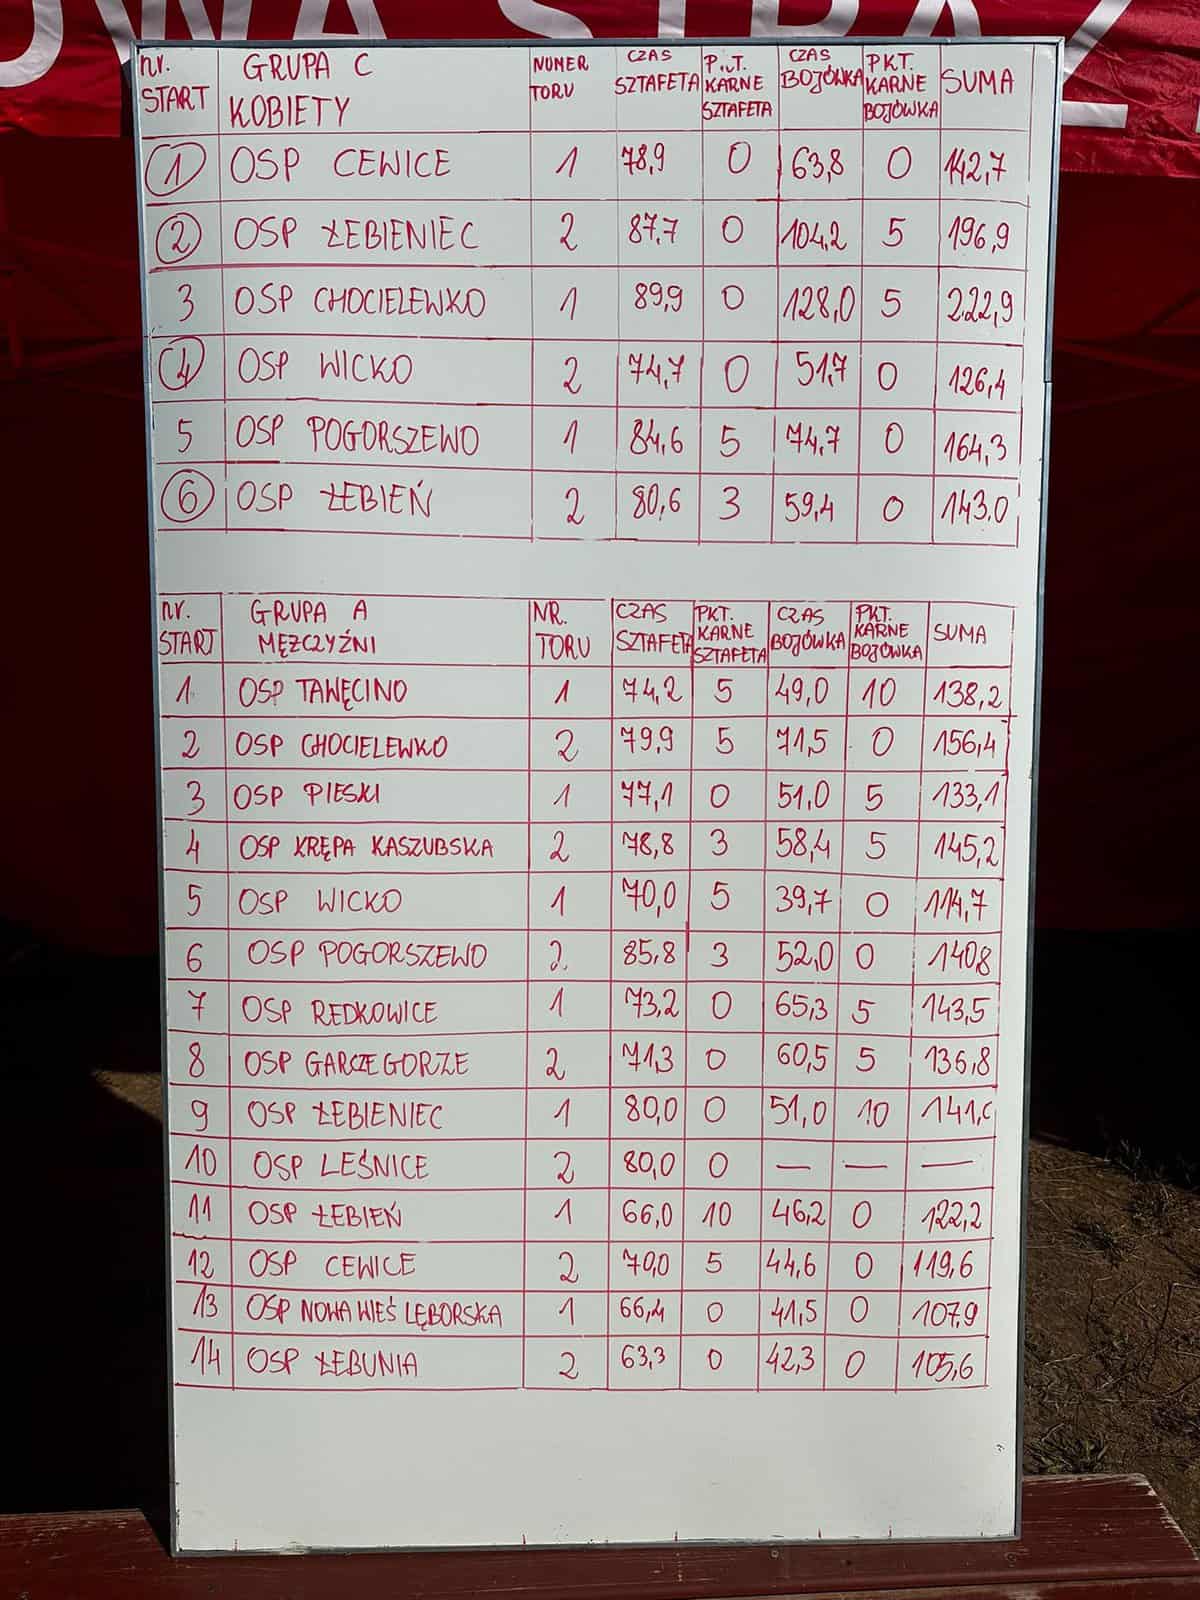 OWA STRAŻ
nr. START GRUPA C KOBIETY NUMER TORU CZAS SZTAFETA P..T. KARNE SZTAFETA CZAS BOJÓWKA PKT. KARNE BOJÓWKA SUMA
1 OSP CEWICE 1 78,9 0 63,8 0 142,7
2 OSP ŁEBIENIEC 2 87,7 0 104,2 5 196,9
3 OSP CHOCIELEWKO 1 89,9 0 128,0 5 222,9
4 OSP WICKO 2 74,7 0 51,7 0 126,4
5 OSP POGORSZEWO 1 84,6 5 74,7 0 164,3
6 OSP ŁEBIEŃ 2 80,6 3 59,4 0 143.0
nr. START GRUPA A MĘZCZYŹNI NR. TORU CZAS SZTAFETA PKT. KARNE SZTAFETA CZAS BOJÓWKA PKT. KARNE BOJÓWKA SUMA
1 OSP TAWĘCINO 1 74,2 5 49,0 10 138,2
2 OSP CHOCIELEWKO 2 79,9 5 71,5 0 156,4
3 OSP PIESKI 1 77,1 0 51,0 5 133,1
4 OSP KRĘPA KASZUBSKA 2 78,8 3 58,4 5 145,2
5 OSP WICKO 1 70,0 5 39,7 0 114,7
6 OSP POGORSZEWO 2 85,8 3 52,0 0 140,8
7 OSP REDKOWICE 1 73,2 0 65,3 5 143,5
8 OSP GARCZEGORZE 2 71,3 0 60,5 5 136,8
9 OSP ŁEBIENIEC 1 80,0 0 51,0 10 141,0
10 OSP LEŚNICE 2 80,0 0 — — —
11 OSP ŁEBIEŃ 1 66,0 10 46,2 0 122,2
12 OSP CEWICE 2 70,0 5 44,6 0 119,6
13 OSP NOWA WIEŚ LĘBORSKA 1 66,4 0 41,5 0 107,9
14 OSP ŁEBUNIA 2 63,3 0 42,3 0 105,6